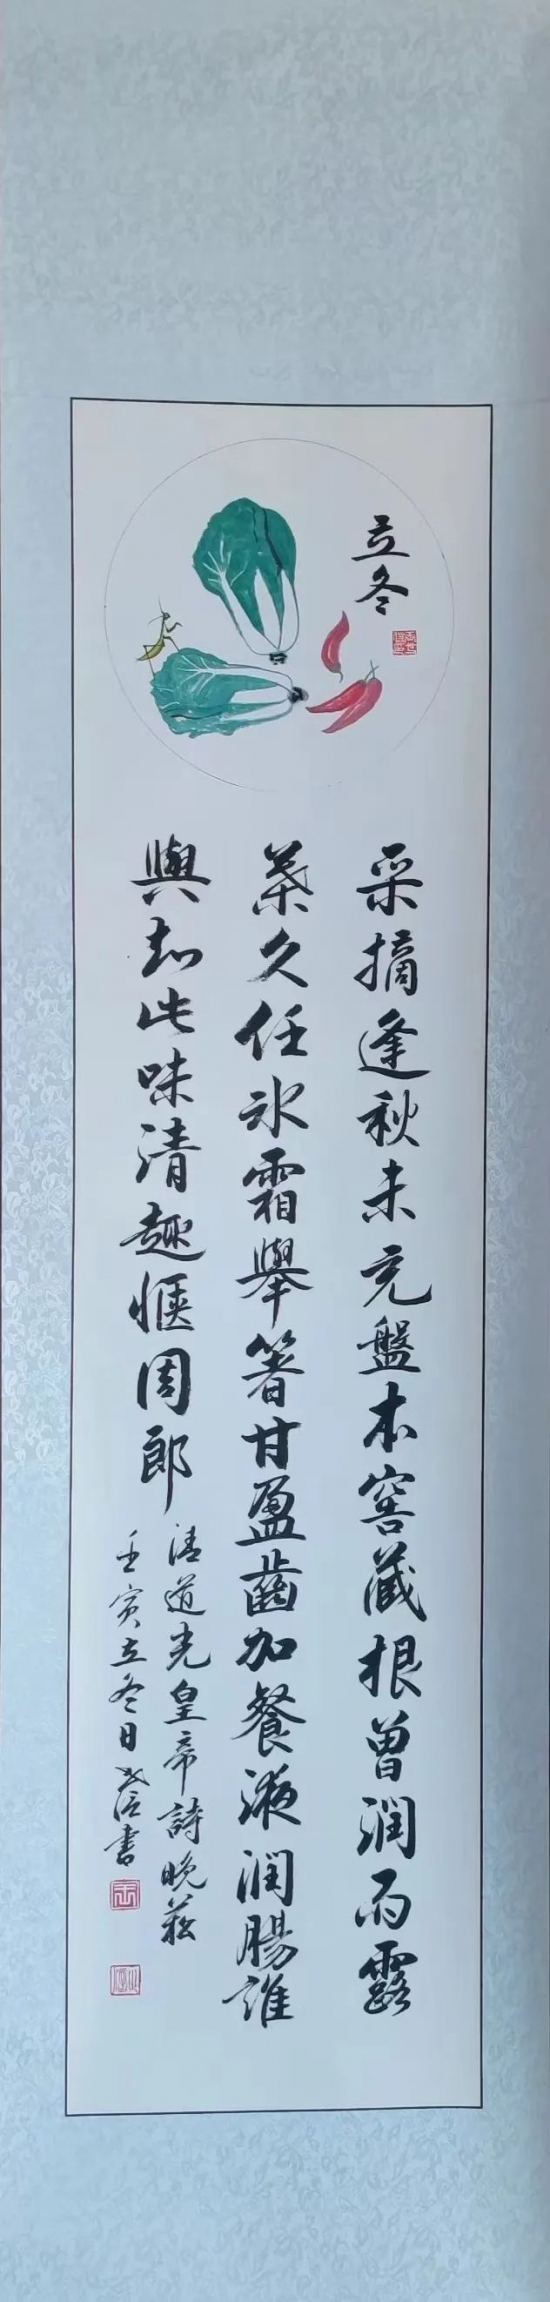 立冬
采摘逢秋末充盤本窖藏根曾润雨露
葉久任冰霜舉箸甘盈齒加餐液润腸誰
與知此味清趣惬周郎
清道光皇帝詩晚菘
壬寅立冬日信書